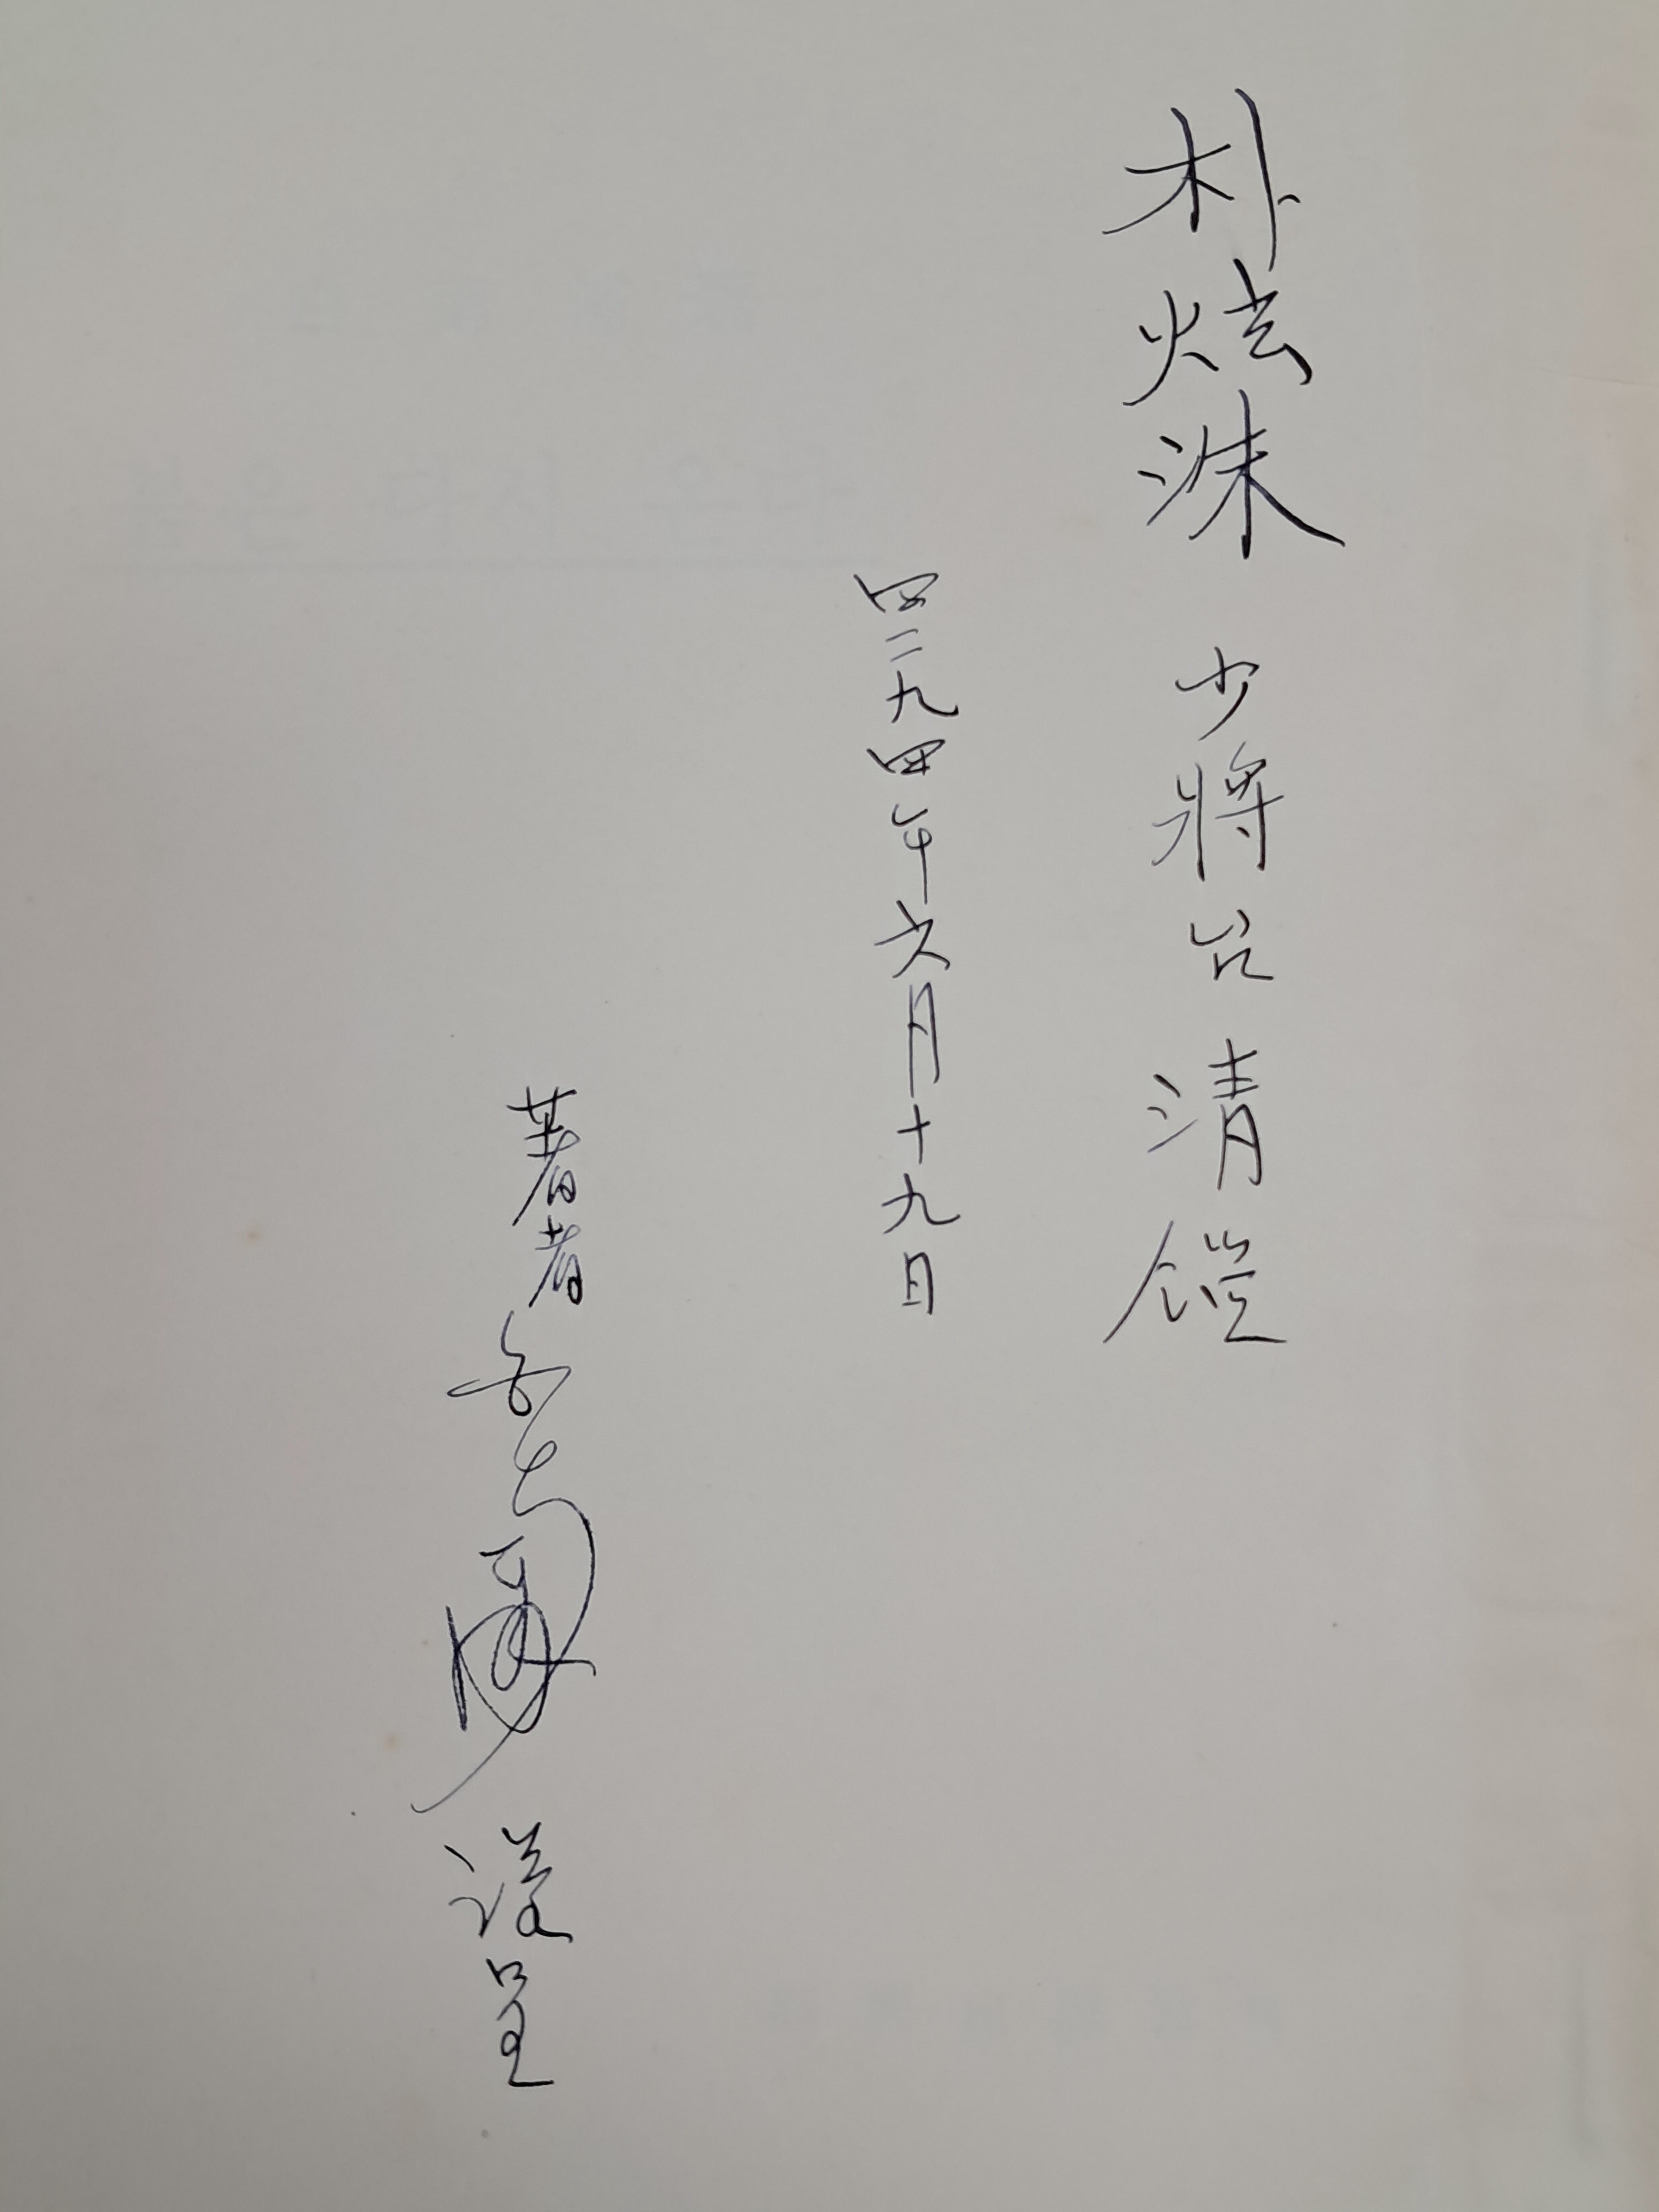 朴炫洙 少將 台 清鑑
四二九四年六月十九日
著者 謹呈